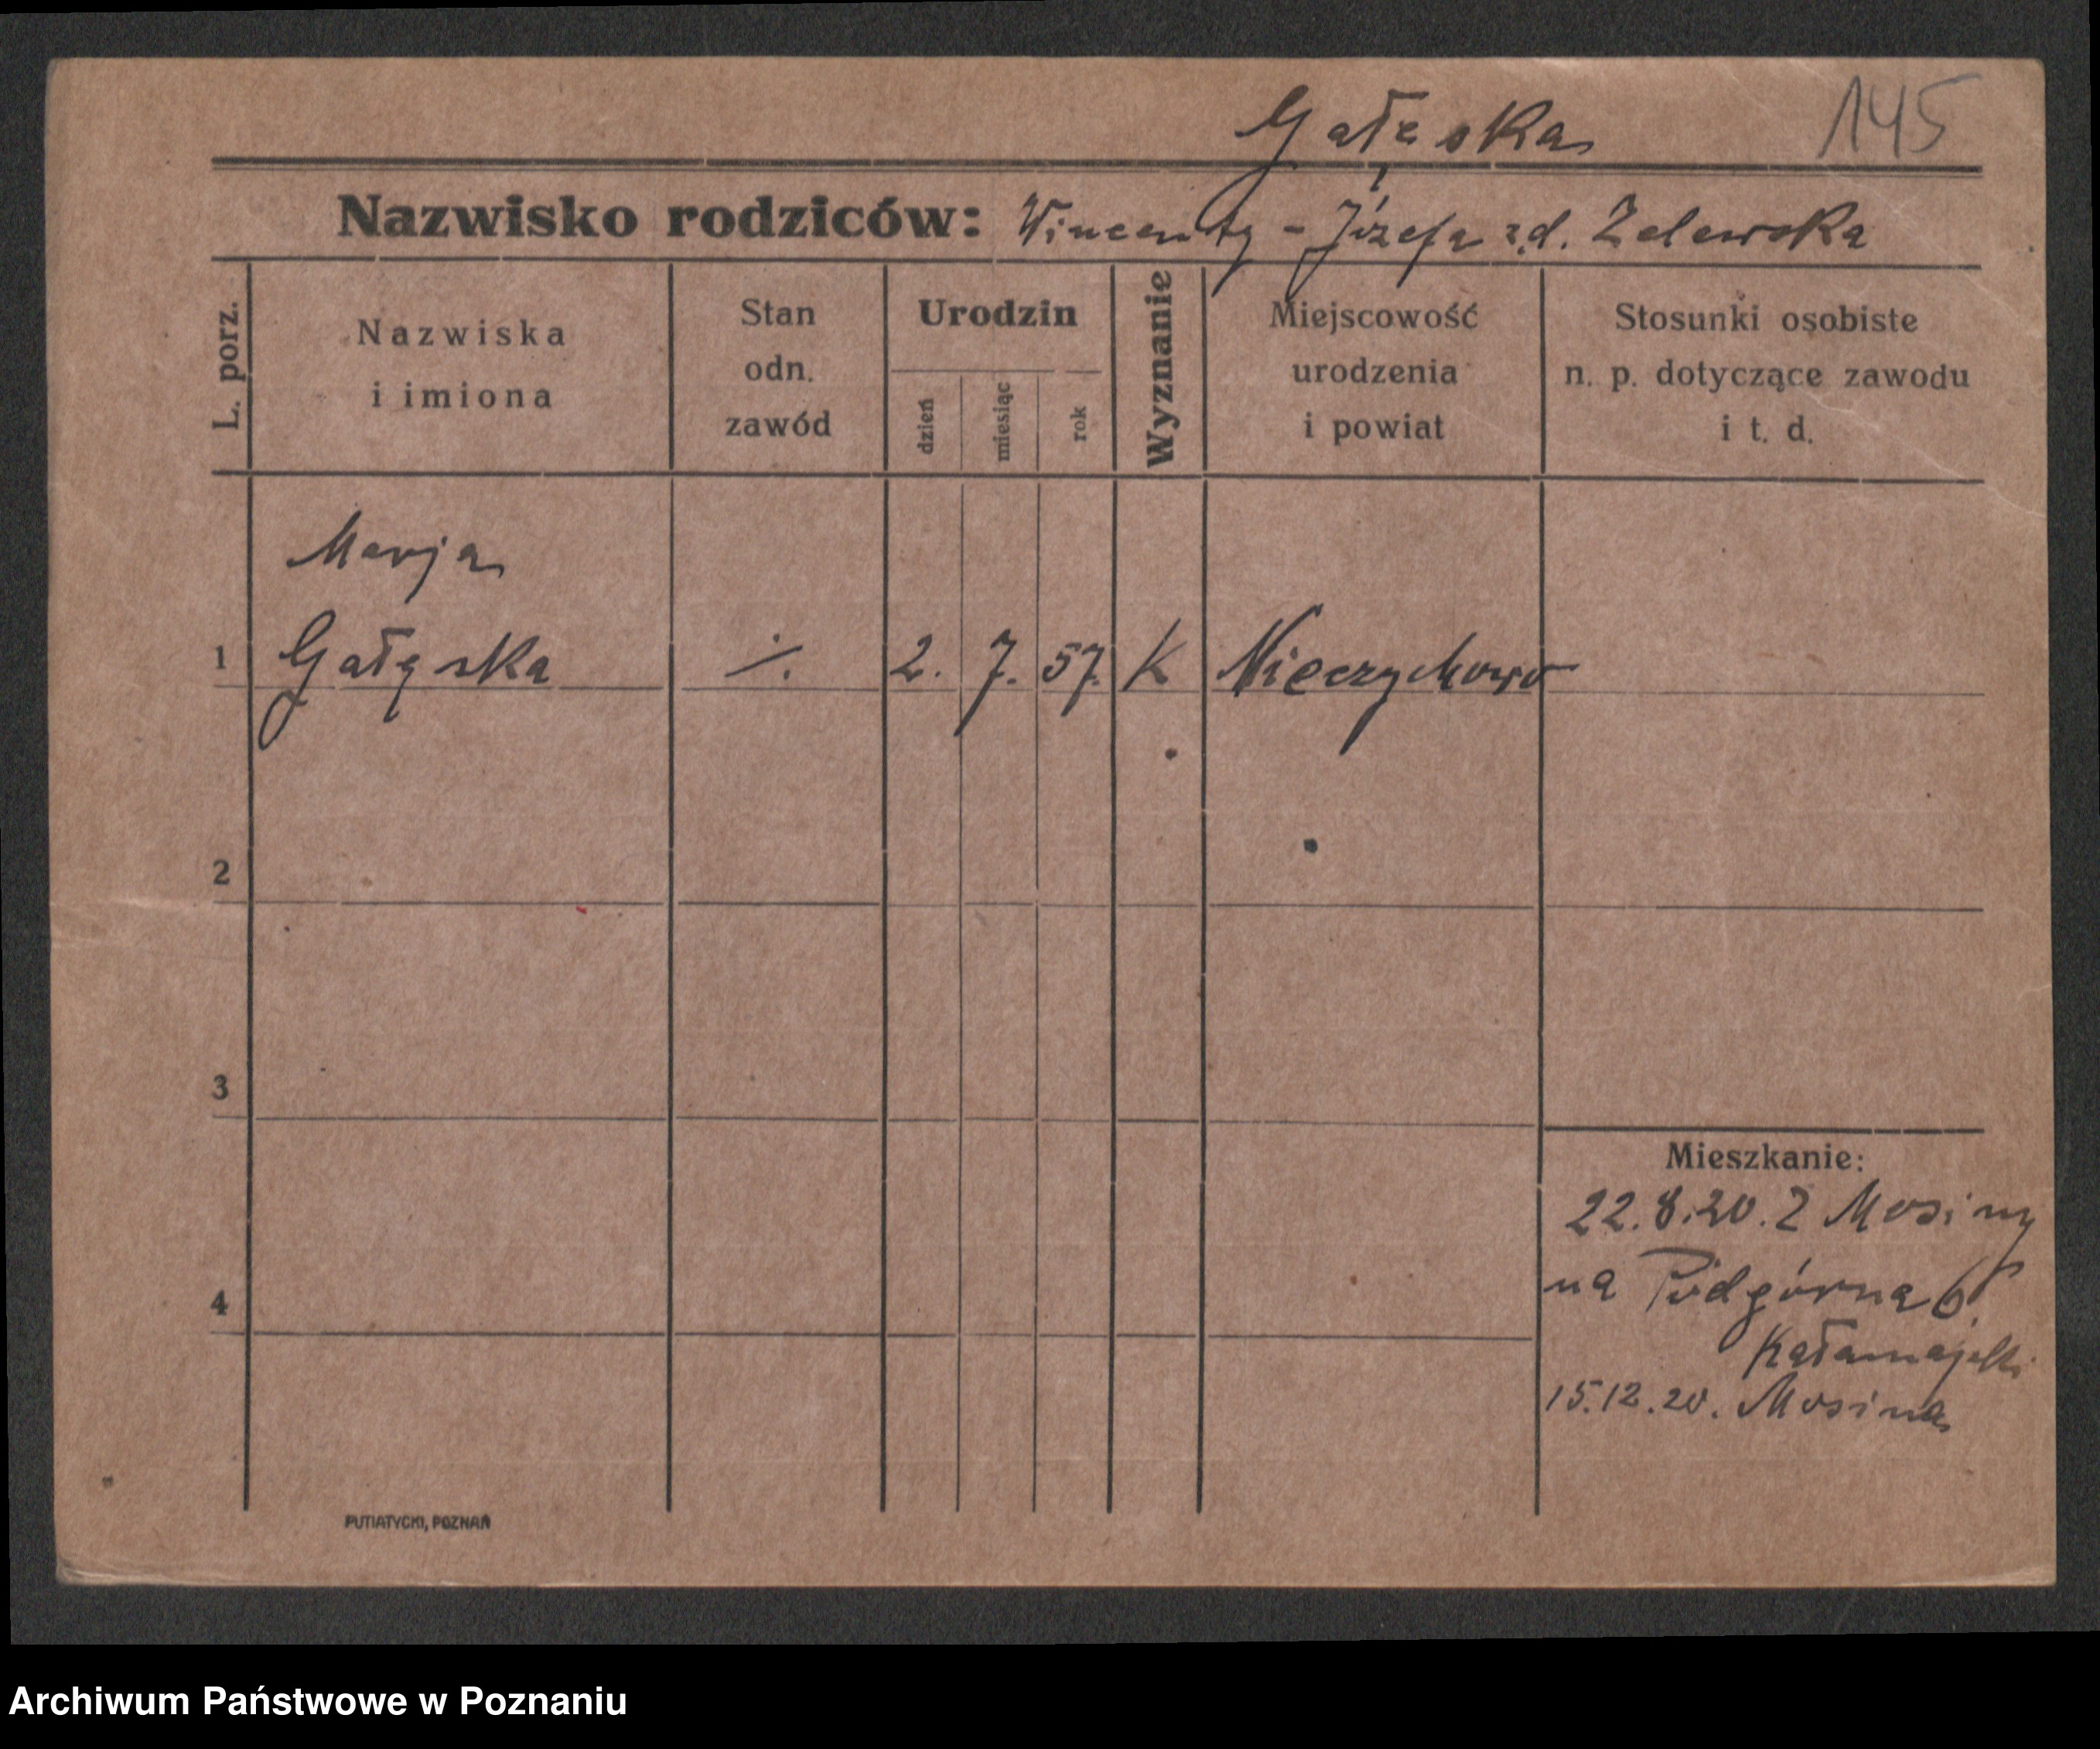 Gałęska 145
Nazwisko rodziców: Wincenty - Józefa z d. Zalewska
L. porz.
Nazwiska
i imiona
Stan
odn.
zawód
Urodzin
dzień
miesiąc
rok
Wyznanie
Miejscowość
urodzenia
i powiat
Stosunki osobiste
n. p. dotyczące zawodu
i t. d.
Marja
1 Gałęska ./. 2. 7. 57. K Mieczychowo
2
3
4
Mieszkanie:
22.8.20. Z Mosiny
na Podgórna 6
15.12.20. Mosina
PUTIATYCKI, POZNAŃ
Archiwum Państwowe w Poznaniu